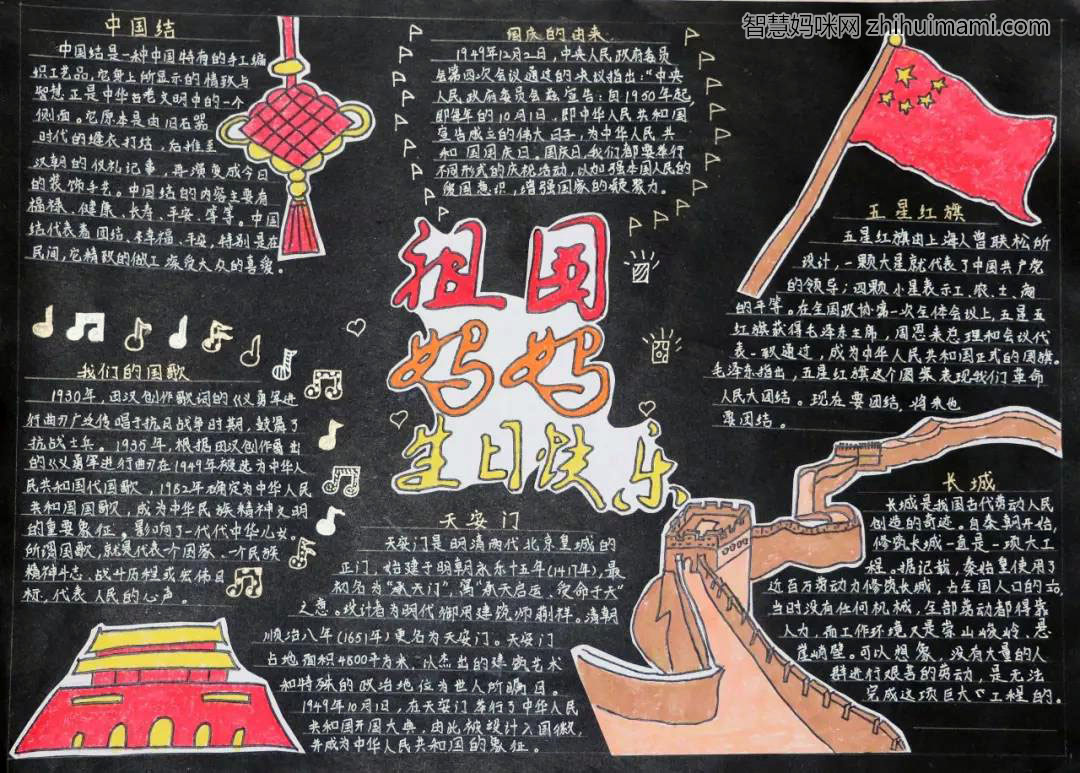 智慧妈咪网 zhihuimami.com
中国结
中国结是一种中国特有的手工编
织工艺品,它身上所显示的情致与
智慧正是中华古老文明中的一个
侧面。它原本是由旧石器
时代的缝衣打结,后推至
汉朝的仪礼记事,再演变成今日
的装饰手艺。中国结的内容主要有
福禄、健康、长寿、平安、等等。中国
结代表着团结、幸福、平安,特别是在
民间,它精致的做工深受大众的喜爱。
国庆的由来
1949年12月2日,中央人民政府委员
会第四次会议通过的决议指出:“中央
人民政府委员会兹宣告:自1950年起,
即每年的10月1日,即中华人民共和国
宣告成立的伟大日子,为中华人民共
和国国庆日。国庆日,我们都要举行
不同形式的庆祝活动,以加强本国人民的
爱国意识,增强国家的凝聚力。
五星红旗
五星红旗由上海人曾联松所
设计,一颗大星就代表了中国共产党
的领导;四颗小星表示工、农、士、商
的平等。在全国政协第一次全体会议上,五星五
红旗获得毛泽东主席,周恩来总理和会议代
表一致通过,成为中华人民共和国正式的国旗。
毛泽东指出,五星红旗这个图案表现我们革命
人民大团结。现在要团结,将来也
要团结。
祖国
妈妈
生日快乐
我们的国歌
1930年,田汉创作歌词的《义勇军进
行曲》广泛传唱于抗日战争时期,鼓舞了
抗战士兵。1935年,根据田汉创作谱出
的《义勇军进行曲》在1949年被选为中华人
民共和国代国歌,1982年确定为中华人民
共和国国歌,成为中华民族精神文明
的重要象征。影响了一代代中华儿女。
所谓国歌,就是代表一个国家、一个民族
精神斗志、战斗历程或宏伟目
标,代表人民的心声。
天安门
天安门是明清两代北京皇城的
正门,始建于明朝永乐十五年(1417年),最
初名为“承天门”,寓“承天启运,受命于天”
之意。设计者为明代御用建筑师蒯祥。清朝
顺治八年(1651年)更名为天安门。天安门
占地面积4800平方米,以杰出的建筑艺术
和特殊的政治地位为世人所瞩目。
1949年10月1日,在天安门举行了中华人民
共和国开国大典,由此被设计入国徽,
并成为中华人民共和国的象征。
长城
长城是我国古代劳动人民
创造的奇迹。自秦朝开始,
修筑长城一直是一项大工
程。据记载,秦始皇使用了
近百万劳动力修筑长城,占全国人口的1/20,
当时没有任何机械,全部劳动都得靠
人力,而工作环境又是崇山峻岭、悬
崖峭壁。可以想象,没有大量的人
群进行艰苦的劳动,是无法
完成这项巨大工程的。